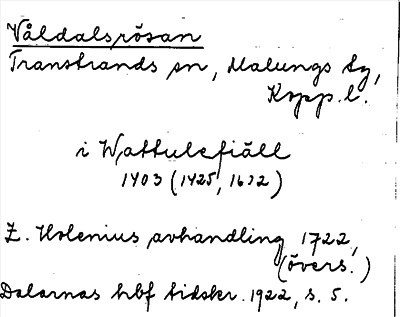 Våldalsrösan
Transtrands sn, Malungs tg,
Kopp.l.
i Wattulefiäll
1403 (1425, 1612)
Z. Holenius avhandling 1722,
(övers.)
Dalarnas hbf tidskr. 1922, s. 5.